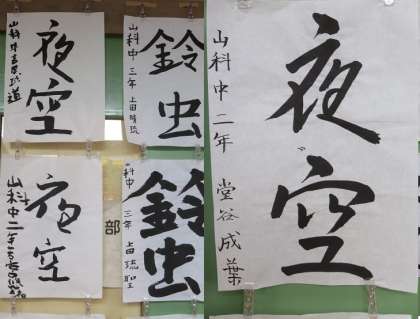 夜空
鈴虫
山科中 三年 上田
夜空
山科中二年
鈴虫
科中 三年 上田 琉聖
部
夜空
山科中二年 堂谷成葉